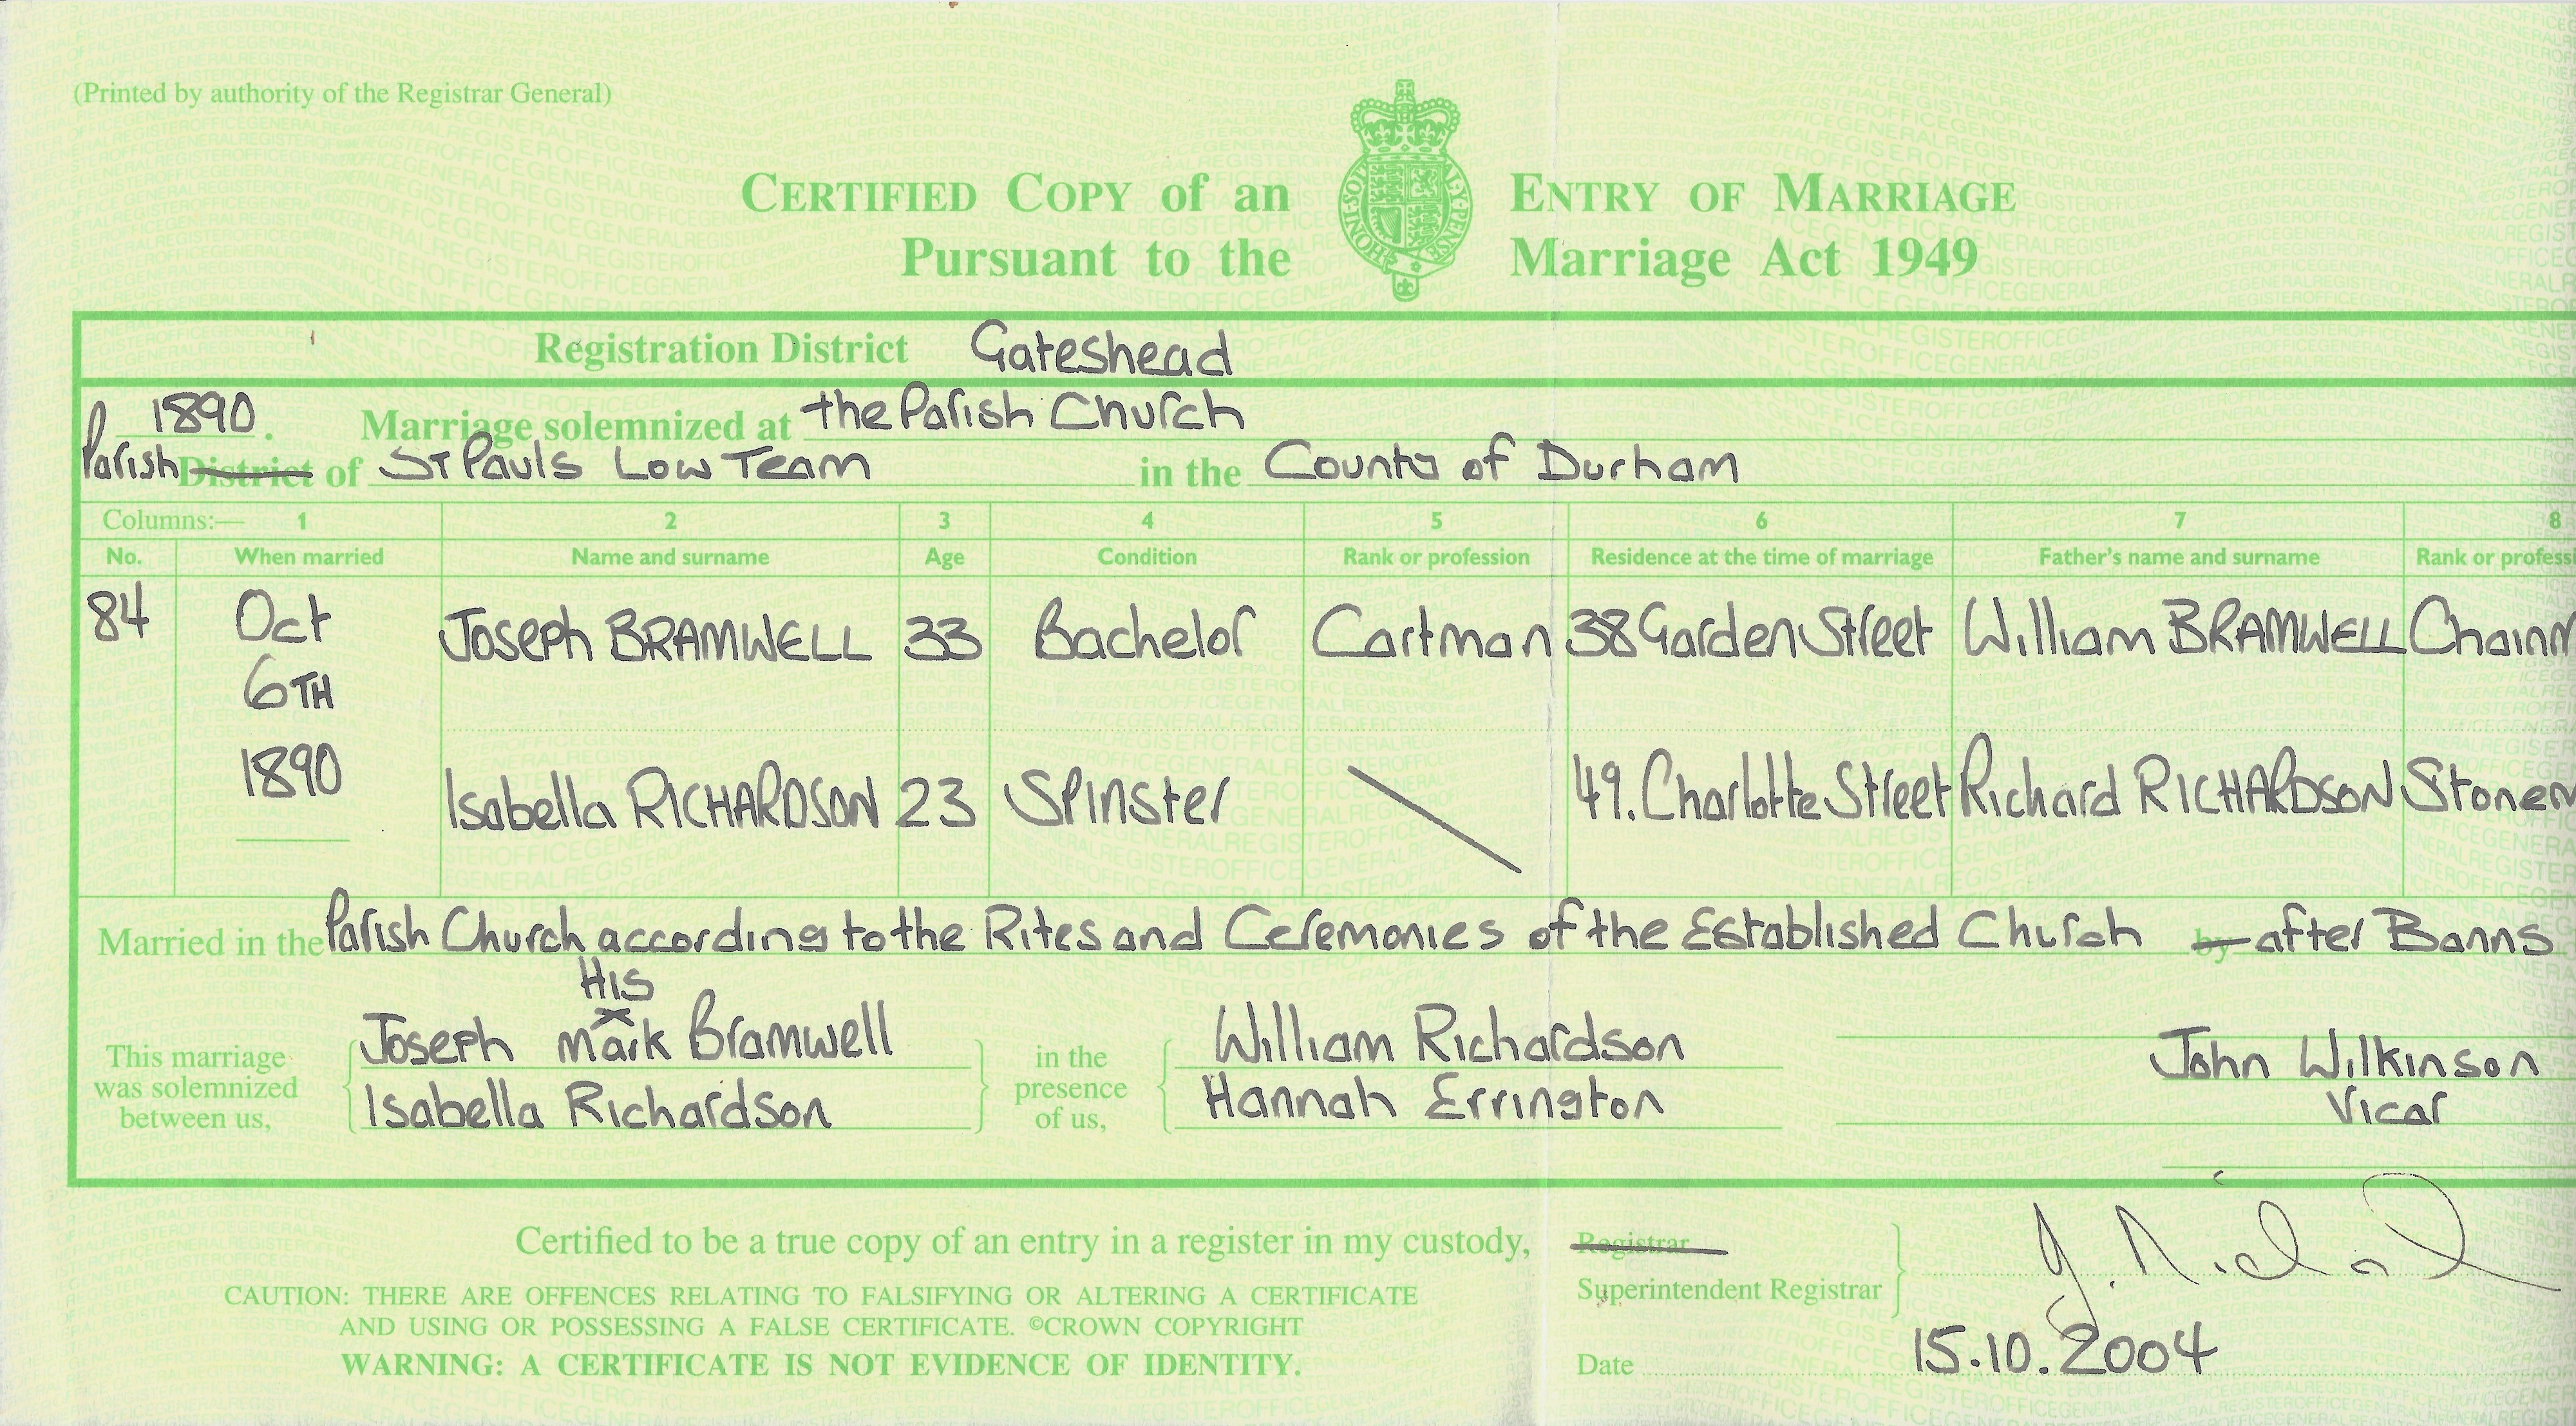 (Printed by authority of the Registrar General)
CERTIFIED COPY of an ENTRY OF MARRIAGE
Pursuant to the Marriage Act 1949
HONI·SOI
Registration District Gateshead
1890. Marriage solemnized at the Parish Church
Parish District of St Pauls Low Team in the County of Durham
Columns:— 1 2 3 4 5 6 7 8
No. When married Name and surname Age Condition Rank or profession Residence at the time of marriage Father's name and surname Rank or professi
84 Oct 6TH 1890 Joseph BRAMWELL 33 Bachelor Cartman 38 Garden Street William BRAMWELL Chainm
Isabella RICHARDSON 23 Spinster 49. Charlotte Street Richard RICHARDSON Stonem
Married in the Parish Church according to the Rites and Ceremonies of the Established Church by after Banns
His
Joseph x mark Bramwell William Richardson John Wilkinson
This marriage was solemnized between us, in the presence of us,
Isabella Richardson Hannah Errington Vicar
Certified to be a true copy of an entry in a register in my custody, Registrar
CAUTION: THERE ARE OFFENCES RELATING TO FALSIFYING OR ALTERING A CERTIFICATE Superintendent Registrar
AND USING OR POSSESSING A FALSE CERTIFICATE. ©CROWN COPYRIGHT
WARNING: A CERTIFICATE IS NOT EVIDENCE OF IDENTITY. Date 15.10.2004